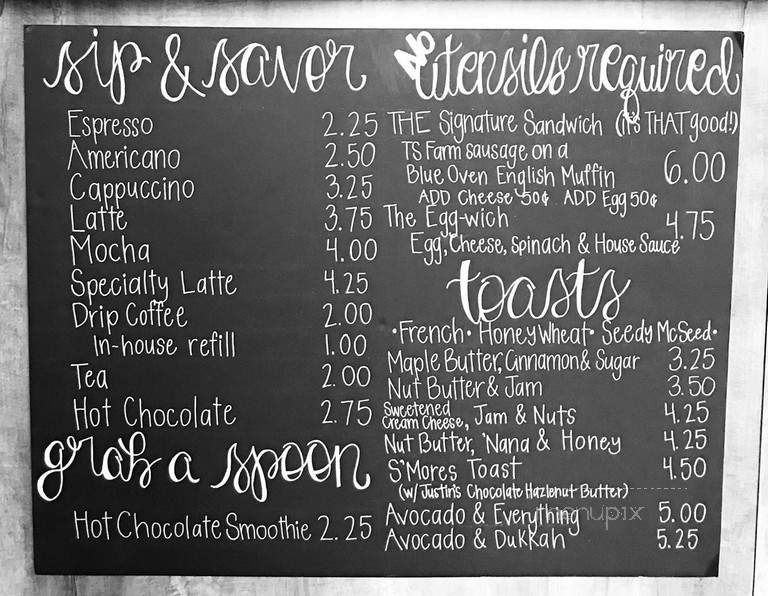 sip & savor
Espresso 2.25
Americano 2.50
Cappuccino 3.25
Latte 3.75
Mocha 4.00
Specialty Latte 4.25
Drip Coffee 2.00
In-house refill 1.00
Tea 2.00
Hot Chocolate 2.75
grab a spoon
Hot Chocolate Smoothie 2.25
No utensils required
THE Signature Sandwich (it's THAT good!)
TS Farm sausage on a
Blue Oven English Muffin 6.00
ADD Cheese 50¢ ADD Egg 50¢
The Egg-wich 4.75
Egg, Cheese, Spinach & House Sauce
toasts
•French• Honey Wheat• Seedy McSeed•
Maple Butter, Cinnamon & Sugar 3.25
Nut Butter & Jam 3.50
Sweetened
Cream Cheese, Jam & Nuts 4.25
Nut Butter, 'Nana & Honey 4.25
S'Mores Toast 4.50
(w/ Justin's Chocolate Hazlenut Butter)
Avocado & Everything 5.00
Avocado & Dukkah 5.25
menupix